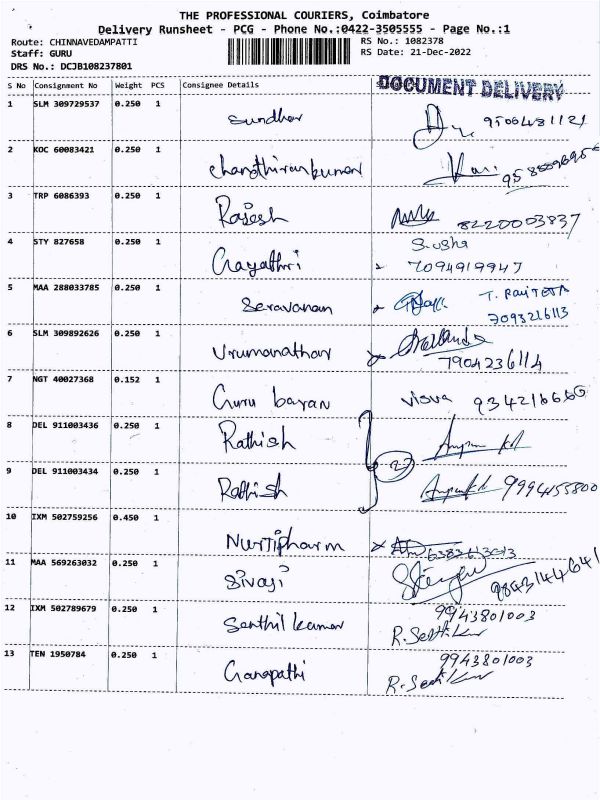 THE PROFESSIONAL COURIERS, Coimbatore
Delivery Runsheet - PCG - Phone No.:0422-3505555 - Page No.:1
Route: CHINNAVEDAMPATTI RS No.: 1082378
Staff: GURU RS Date: 21-Dec-2022
DRS No.: DCJB108237801
S No Consignment No Weight PCS Consignee Details DOCUMENT DELIVERY
1 SLM 309729537 0.250 1 Sundhar 9500481121
2 KOC 60083421 0.250 1 chandhirankumar
3 TRP 6086393 0.250 1 Rajesh 8220003837
4 STY 827658 0.250 1 Gayathri S.usha
7094919947
5 MAA 288033785 0.250 1 Saravanan T. RAVITEJA
7093216113
6 SLM 309892626 0.250 1 Virumanathan 7904236114
7 NGT 40027368 0.152 1 Guru baran Visva 934216666
8 DEL 911003436 0.250 1 Rathish
9 DEL 911003434 0.250 1 Rathish 9994155800
10 IXM 502759256 0.450 1 Nutripharm
11 MAA 569263032 0.250 1 Sivaji 9843144641
12 IXM 502789679 0.250 1 Senthil kumar 9943801003
R.Senthil Kumar
13 TEN 1950784 0.250 1 Ganapathi 9943801003
R.Senthil Kumar